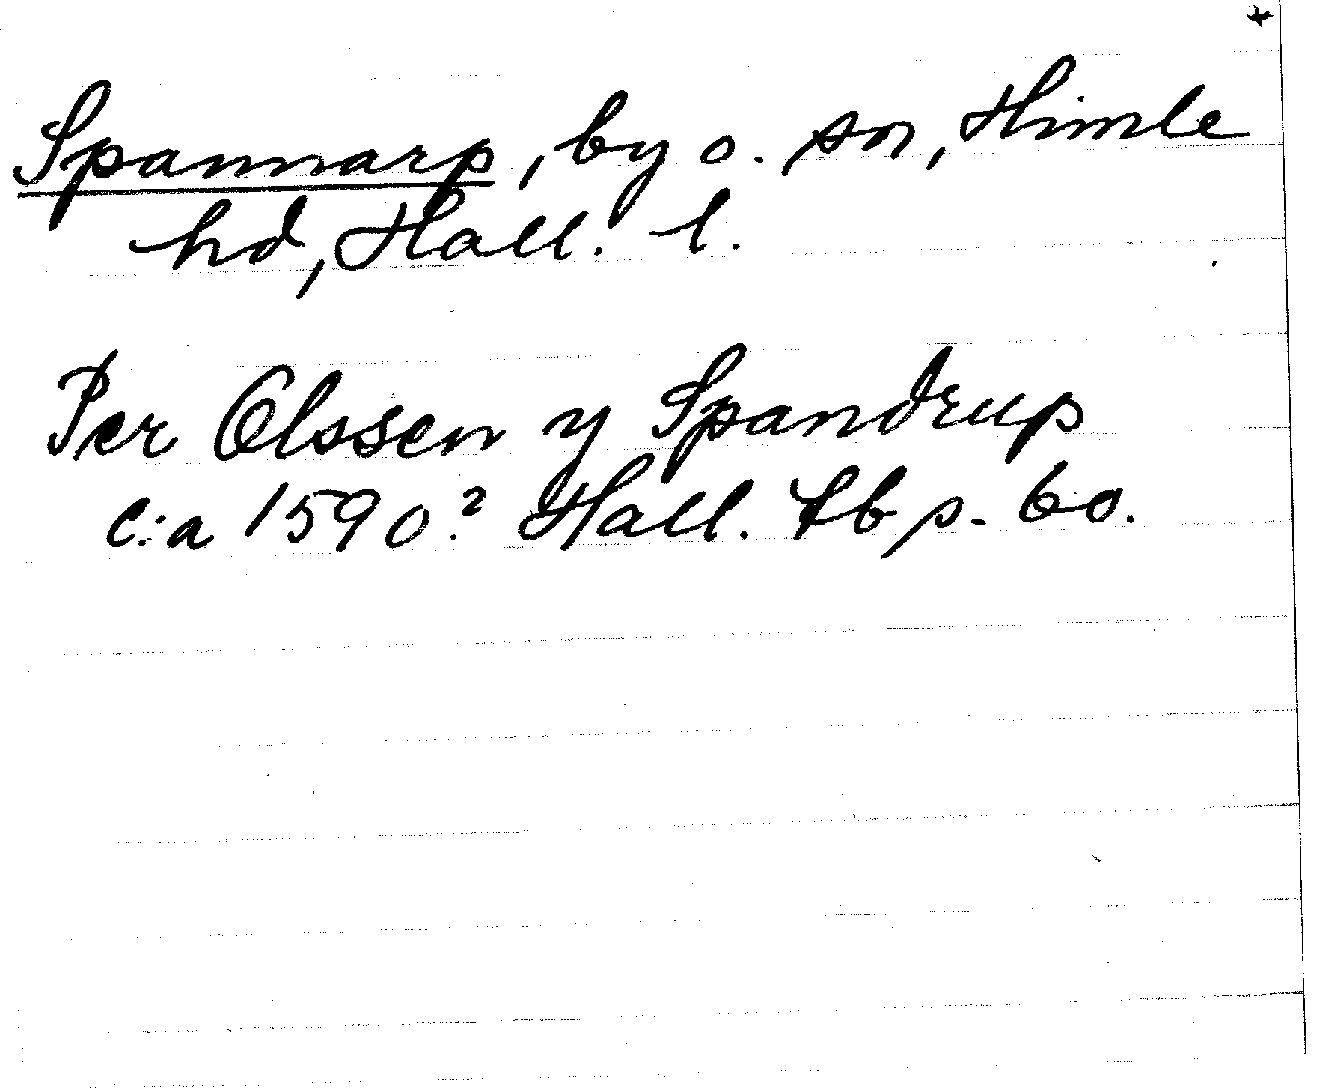 Spannarp, by o. sn, Himle
hd, Hall. l.
Per Olssen y Spandrup
c:a 1590? Hall. tb s. 60.